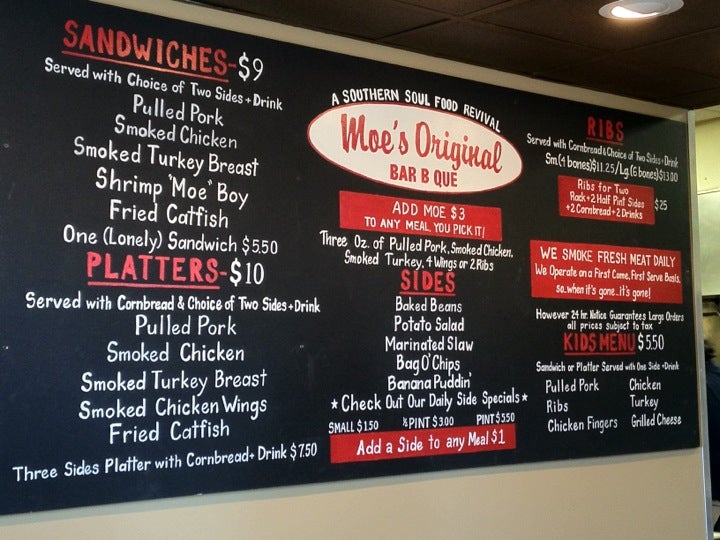 SANDWICHES-$9
Served with Choice of Two Sides + Drink
Pulled Pork
Smoked Chicken
Smoked Turkey Breast
Shrimp "Moe" Boy
Fried Catfish
One (Lonely) Sandwich $5.50
PLATTERS-$10
Served with Cornbread & Choice of Two Sides + Drink
Pulled Pork
Smoked Chicken
Smoked Turkey Breast
Smoked Chicken Wings
Fried Catfish
Three Sides Platter with Cornbread + Drink $7.50
A SOUTHERN SOUL FOOD REVIVAL
Moe's Original
BAR B QUE
ADD MOE $3
TO ANY MEAL, YOU PICK IT!
Three Oz. of Pulled Pork, Smoked Chicken,
Smoked Turkey, 4 Wings or 2 Ribs
SIDES
Baked Beans
Potato Salad
Marinated Slaw
Bag O' Chips
Banana Puddin'
★ Check Out Our Daily Side Specials ★
SMALL $1.50 ½ PINT $3.00 PINT $5.50
Add a Side to any Meal $1
RIBS
Served with Cornbread & Choice of Two Sides + Drink
Sm (4 bones) $11.25 / Lg. (6 bones) $13.00
Ribs for Two
Rack + 2 Half Pint Sides
+ 2 Cornbread + 2 Drinks
$25
WE SMOKE FRESH MEAT DAILY
We Operate on a First Come, First Serve Basis,
so..when it's gone..it's gone!
However 24 hr. Notice Guarantees Large Orders
all prices subject to tax
KIDS MENU $5.50
Sandwich or Platter Served with One Side + Drink
Pulled Pork Chicken
Ribs Turkey
Chicken Fingers Grilled Cheese